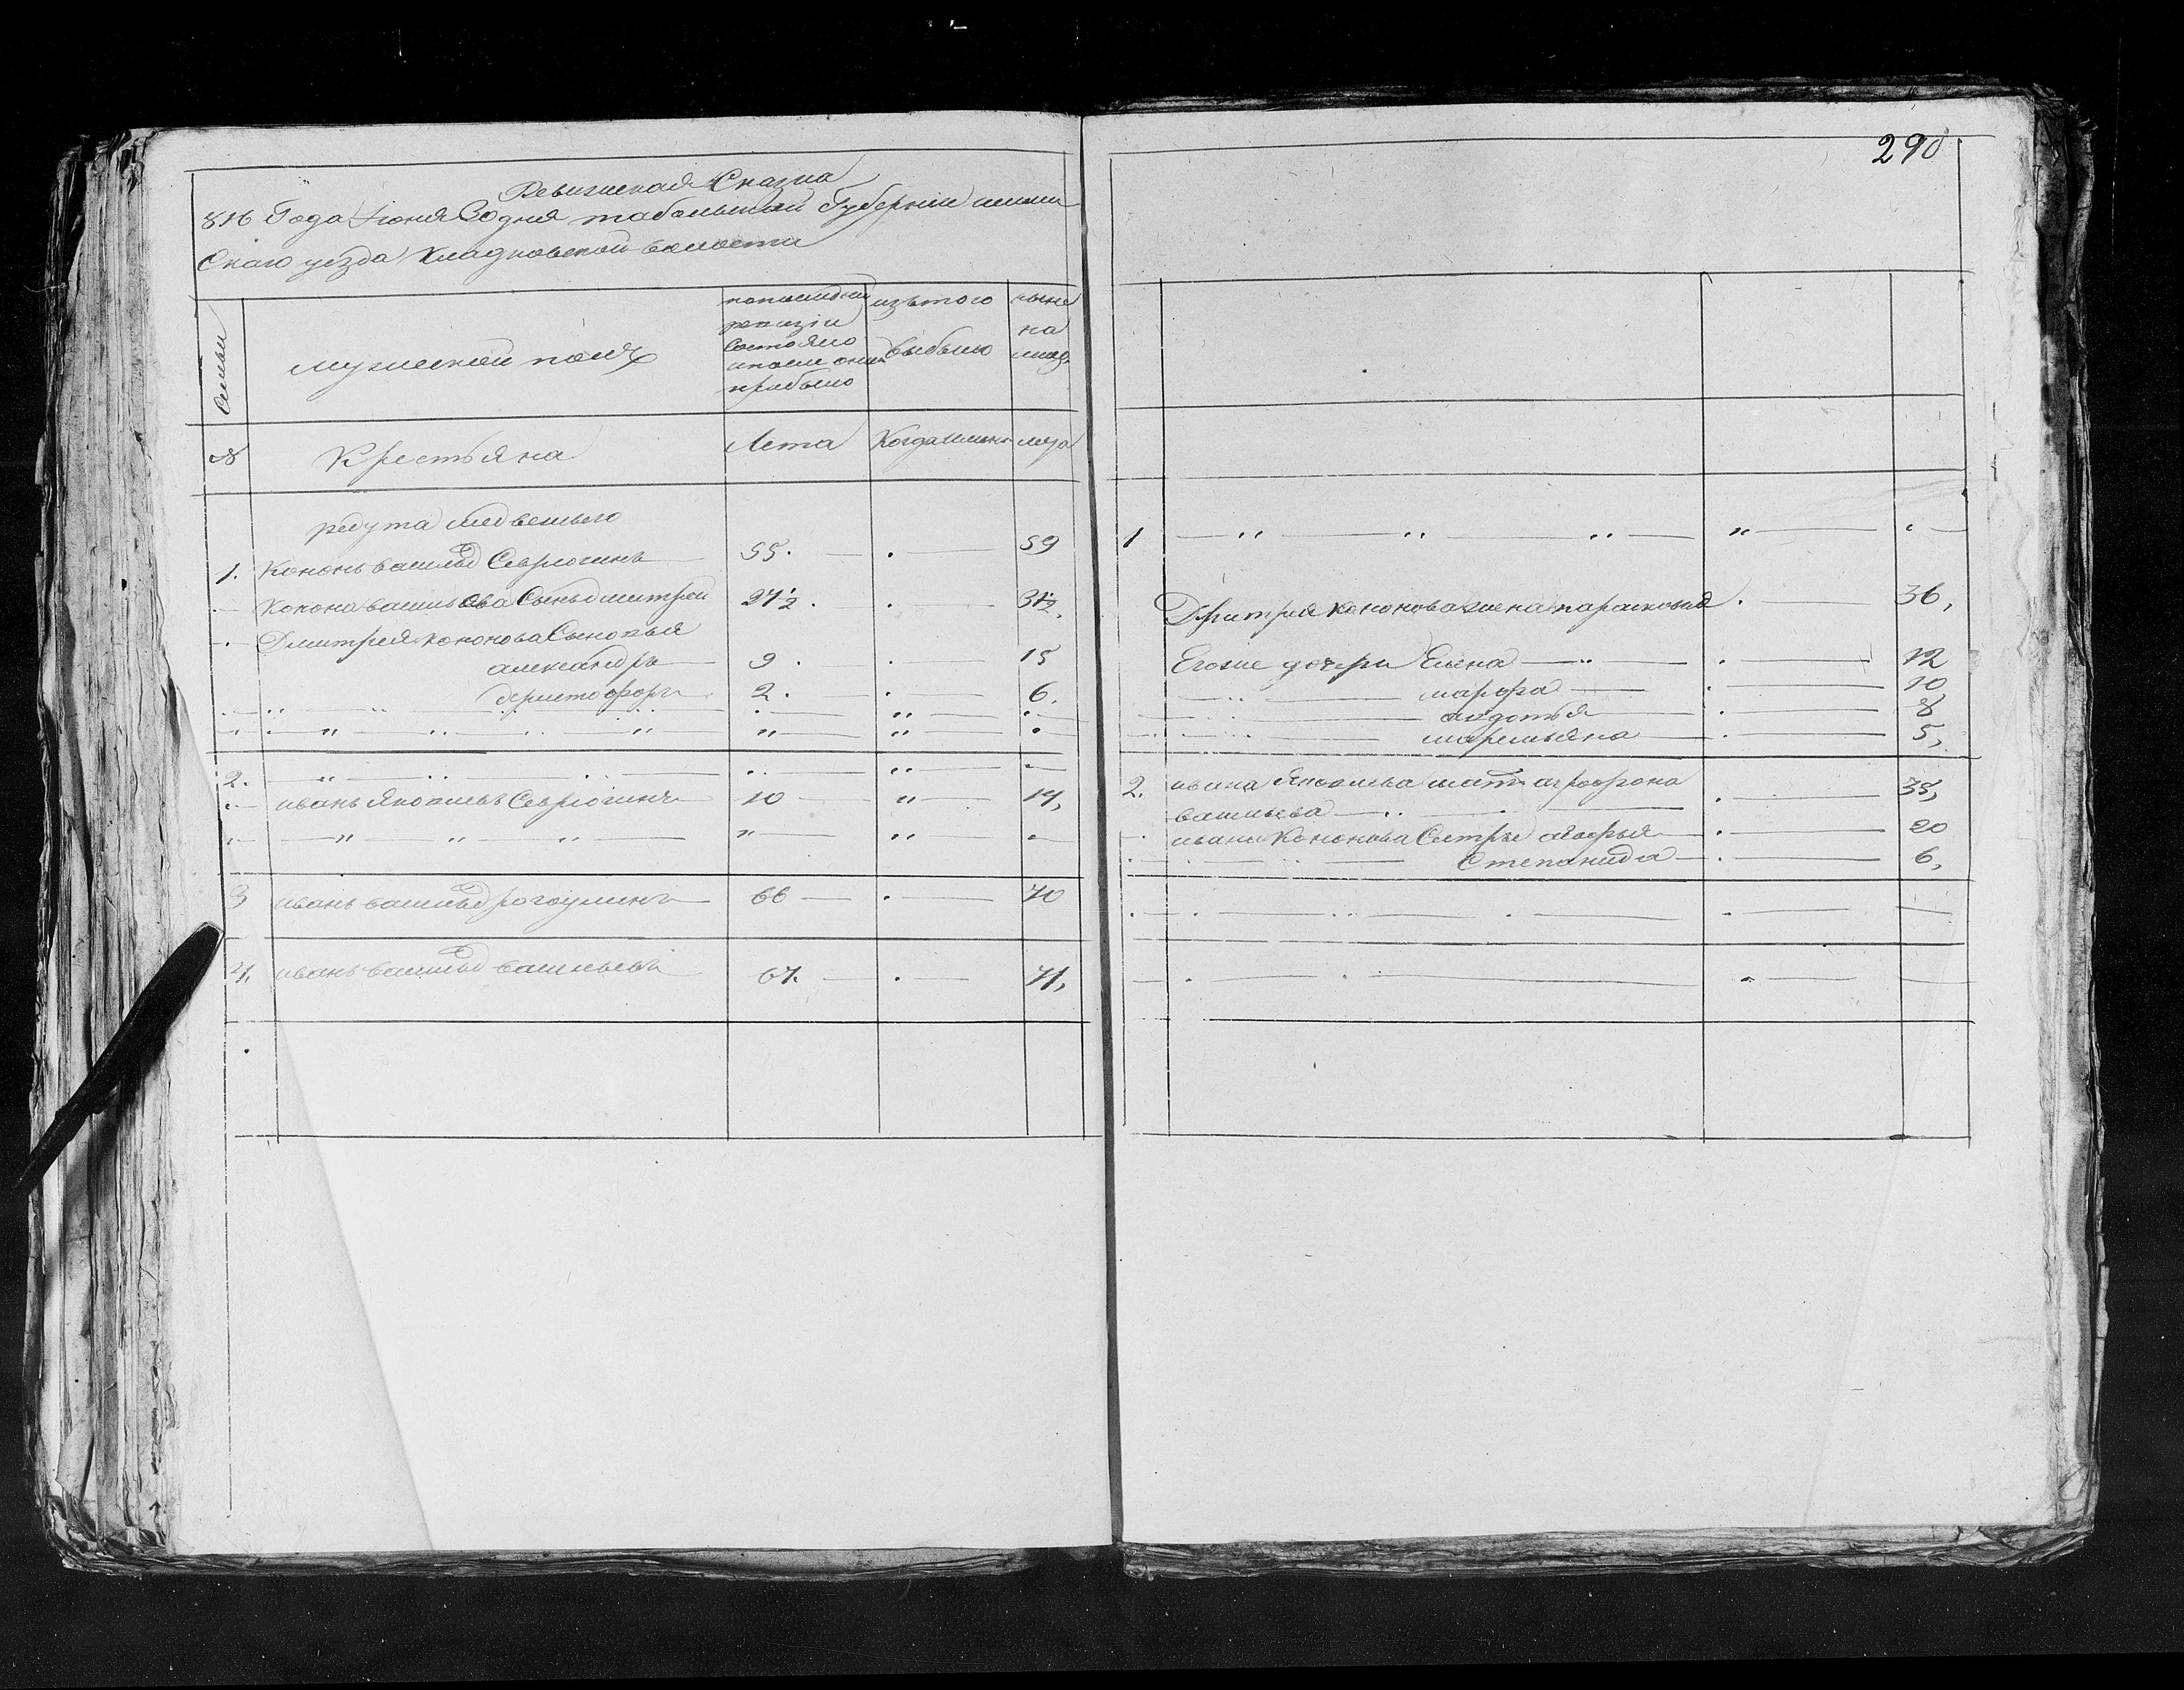 290
Ревизская Сказка
816 Года Июня 30 дня табольской Губернии ишим
Скаго уезда Кладковской валости
Семьи
мужеской полъ
попоследней
ревизии
Состояло
ипосле оной
прибыло
изътого
выбыло
ныне
на
лицо
№
Крестьяна
Лета
Когда имянно
лета
редута медвежьево
1. Кононъ васильевъ Севрюгинъ 55. 59
Конона васильева Сынъ дмитрей 27 1/2. 31 1/2,
Дмитрея кононова Сыновья
александръ 9. 15
христофоръ 2. 6.
2.
иванъ Яковлевъ Севрюгинъ 10 14,
3 иванъ васильевъ 66 70
4. иванъ васильевъ васильевъ 67. 71,
1
Дмитрея кононова жена парасковья 36,
Егоже дочери Елена 12
марфа 10,
авдотья 8
маремьяна 5,
2. ивана Яковлева мать агрофена 35,
васильева
ивана Кононова Сестры 20
Степанида 6,